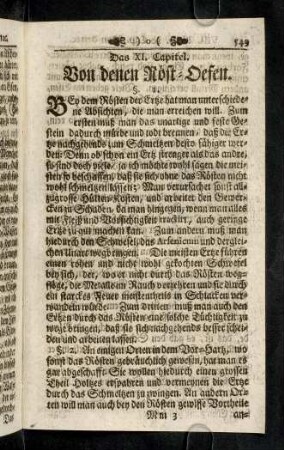 )o(
549
Das XI. Capitel.
Von denen Röst-Oefen.
§. 1.
BEy dem Rösten der Ertze hat man unterschiede-
ne Absichten, die man erreichen will. Zum
ersten muß man das quartzige und feste Ge-
stein dadurch mürbe und todt brennen, daß die Er-
tze nachgehends zum Schmeltzen desto fähiger wer-
den: Denn ob schon ein Ertz strenger als das andre,
so sind doch viele, ja ich möchte wohl sagen die mei-
sten so beschaffen, daß sie sich ohne das Rösten nicht
wohl schmeltzen lassen; Man verursachet sonst all-
zugrosse Hütten-Kosten, und arbeitet den Gewer-
cken zu Schaden, da man hingegen, wenn man alles
mit Fleiß und Vorsichtigkeit tractirt, auch geringe
Ertze zu gut machen kan. Zum andern muß man
hiedurch den Schwefel, das Arsenicum und dergleí-
chen Unart wegbringen. Die meisten Ertze führen
einen rohen und nicht wohl gekochten Schwefel
bey sich, der, wo er nicht durch das Rösten weg-
der Metall am Rauch verzehren und sie durch
ein starckes Feuer meistentheils in Schlacken ver-
wandeln würde. Zum dritten muß man auch den
Ertzen durch das Rösten eine solche Tüchtigkeit zu
wege bringen, daß sie sich nachgehends besser schei-
den und arbeiten lassen.
§. 2. An einigen Orten in dem Vor-Hartz, wo
sonst das Rösten gebräuchlich gewesen, hat man es
gar abgeschafft: Sie wollen hiedurch einen grossen
Theil Holtzes ersparen und vermeynen die Ertze
durch das Schmeltzen zu zwingen. An andern Or-
ten will man auch bey den Rösten gewisse Vortheile
Mm 3
an-